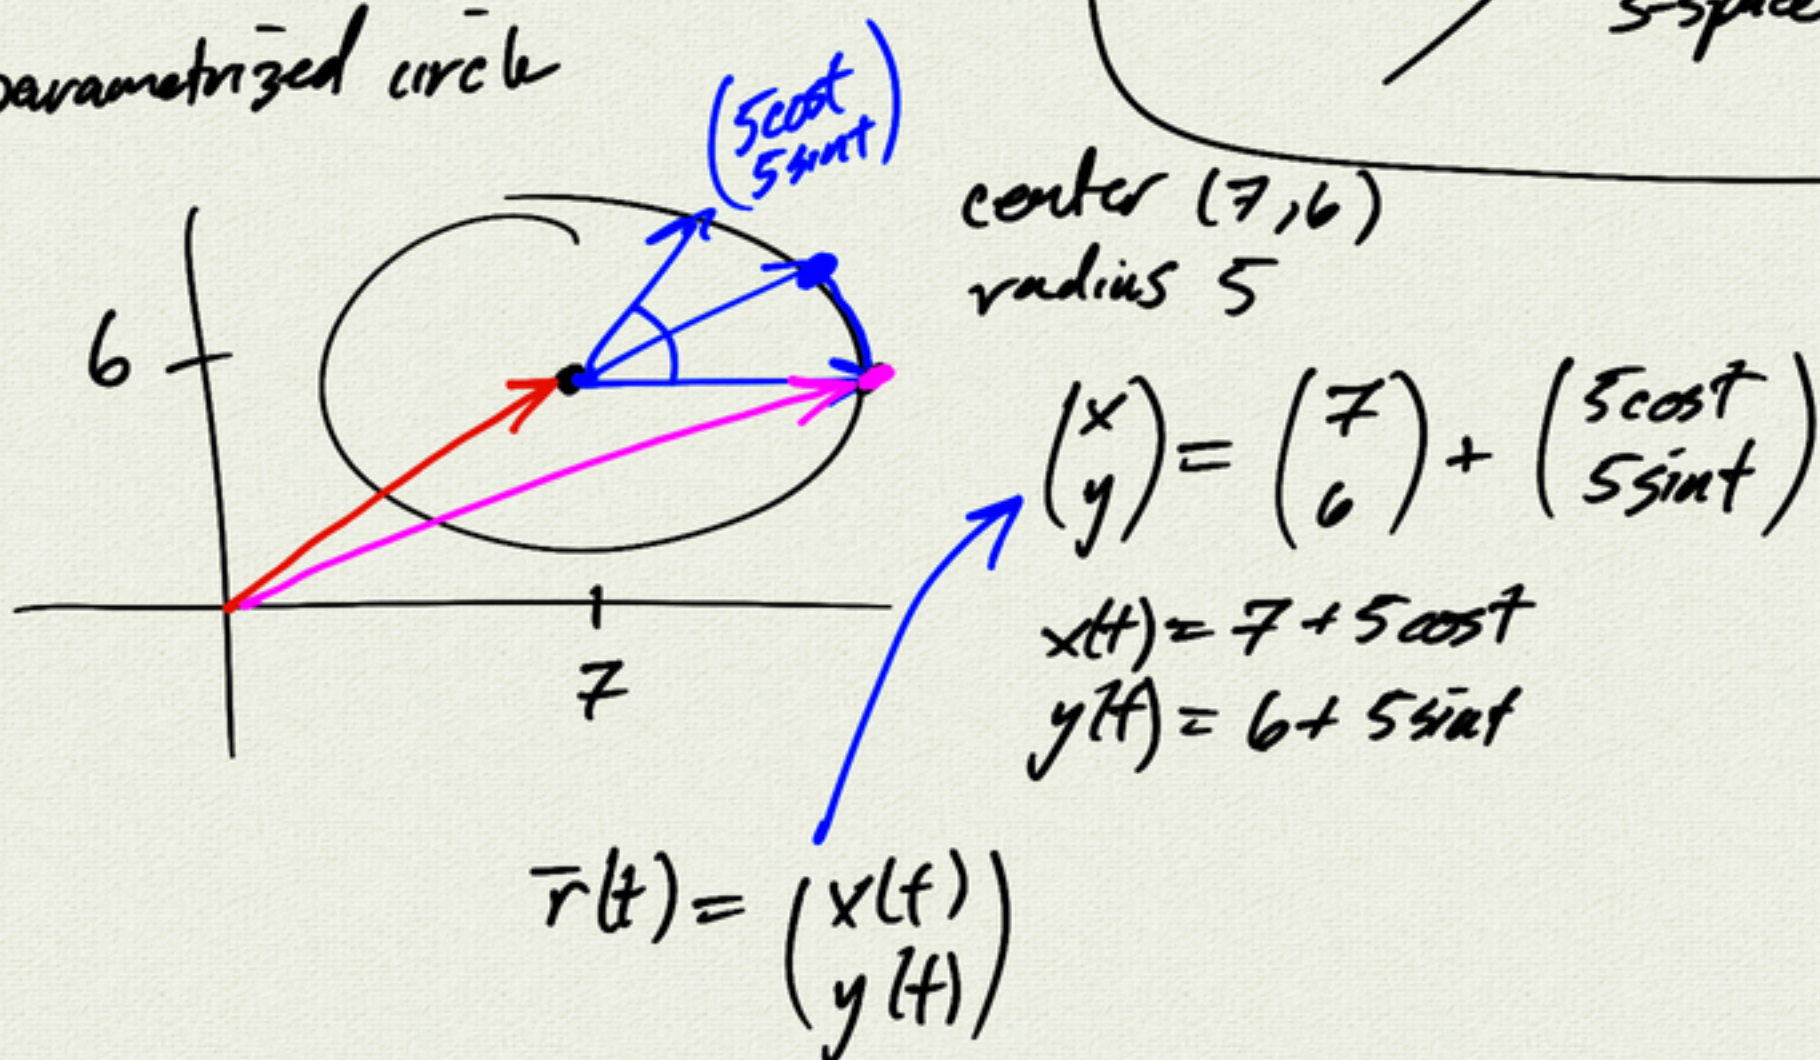 parametrized circle
3-space
(5cost
5sint)
center (7,6)
radius 5
6
7
(x
y) = (7
6) + (5cost
5sint)
x(t) = 7 + 5cost
y(t) = 6 + 5sint
r̄(t) = (x(t)
y(t))